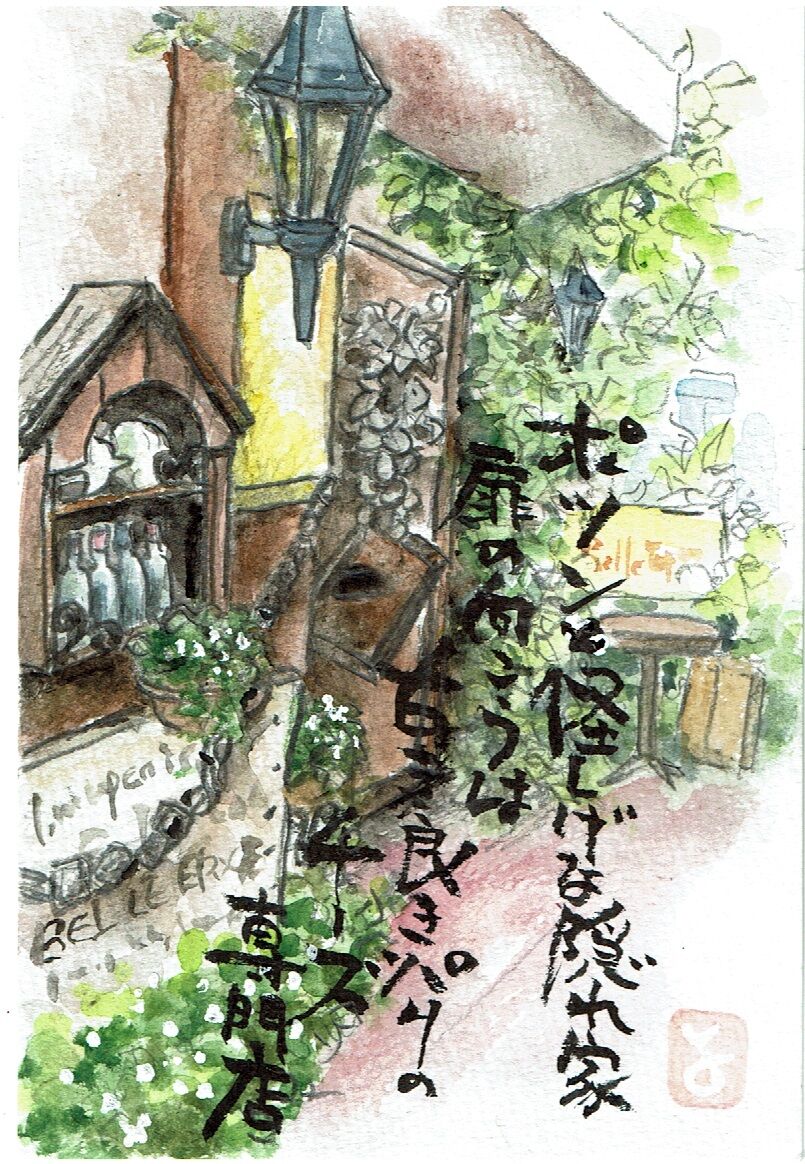 ポツンと怪しげな隠れ家
扉の向こうは
古き良きパリの
ビーズ
専門店
Belle Ep
BEL LE EPOC